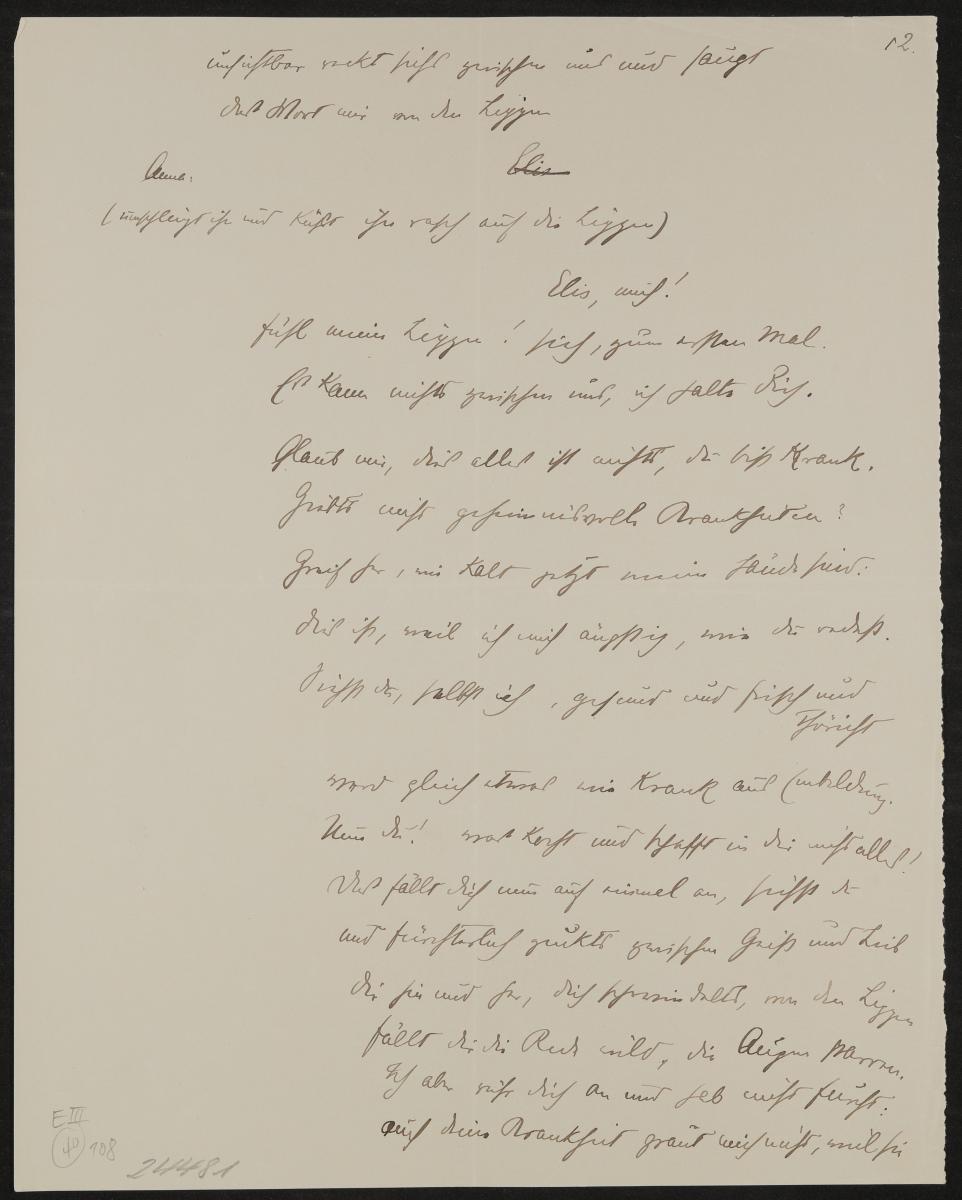 12.
unsichtbar reckt sichs zwischen uns und saugt
das Wort mir von den Lippen
Elis
Anna:
(umschlingt ihn und küßt ihn rasch auf die Lippen)
Elis, mich!
fühl meine Lippen! sieh, zum ersten Mal.
Es kann nichts zwischen uns, ich halte Dich.
Glaub mir, dies alles ist nichts, du bist krank.
Giebts nicht geheimnisvolle Krankheiten?
Greif her, wie kalt jetzt meine Hände sind:
dies ist, weil ich mich ängstig, wie du redest.
Siehst du, selbst ich, gesund und frisch und
thöricht
werd gleich etwas wie krank aus Einbildung.
Nun du! was kocht und schafft in dir nicht alles!
Das fällt dich nun auf einmal an, siehst du
und fürchterlich zuckts zwischen Geist und Leib
dir hin und her, dich schwindelts, von den Lippen
fällt dir die Rede wild, die Augen starren.
Ich aber rühr dich an und hab nicht Furcht:
auch deine Krankheit graut mich nicht, weil sie
E III
40
108
24481